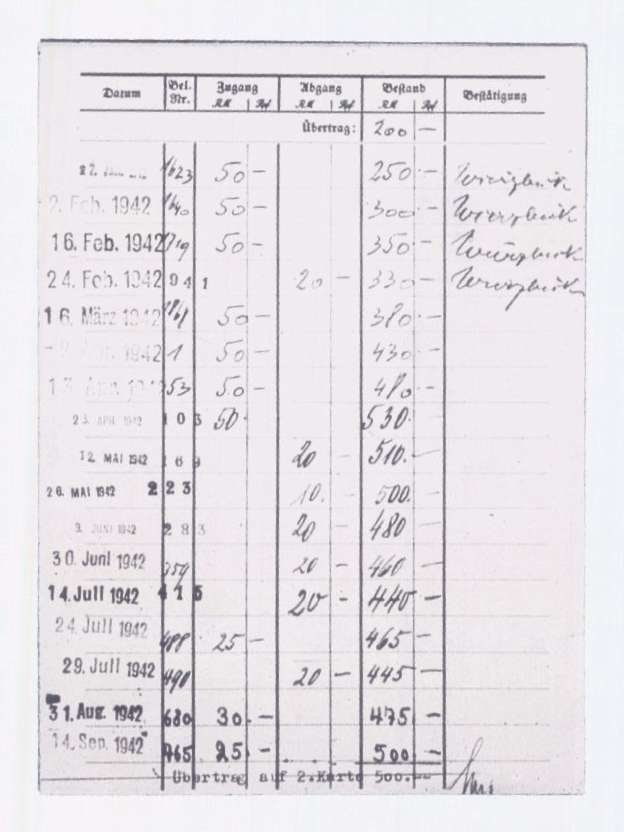 Datum Bel. Nr. Zugang RM Rpf Abgang RM Rpf Bestand RM Rpf Bestätigung
Übertrag: 200 —
1623 50 — 250 —
2. Feb. 1942 1640 50 — 300 —
16. Feb. 1942 1719 50 — 350 —
24. Feb. 1942 941 20 — 330 —
16. März 1942 50 — 380 —
1 50 — 430 —
53 50 — 480 —
23. APR. 1942 103 50 530 —
12. MAI 1942 169 20 — 510. —
26. MAI 1942 223 10. — 500. —
9. JUNI 1942 283 20 — 480 —
30. Juni 1942 359 20 — 460 —
14. Juli 1942 415 20 — 440 —
24. Juli 1942 488 25 — 465 —
29. Juli 1942 490 20 — 445 —
31. Aug. 1942 680 30. — 475 —
14. Sep. 1942 765 25. — 500 —
Übertrag auf 2.Karte 500.--